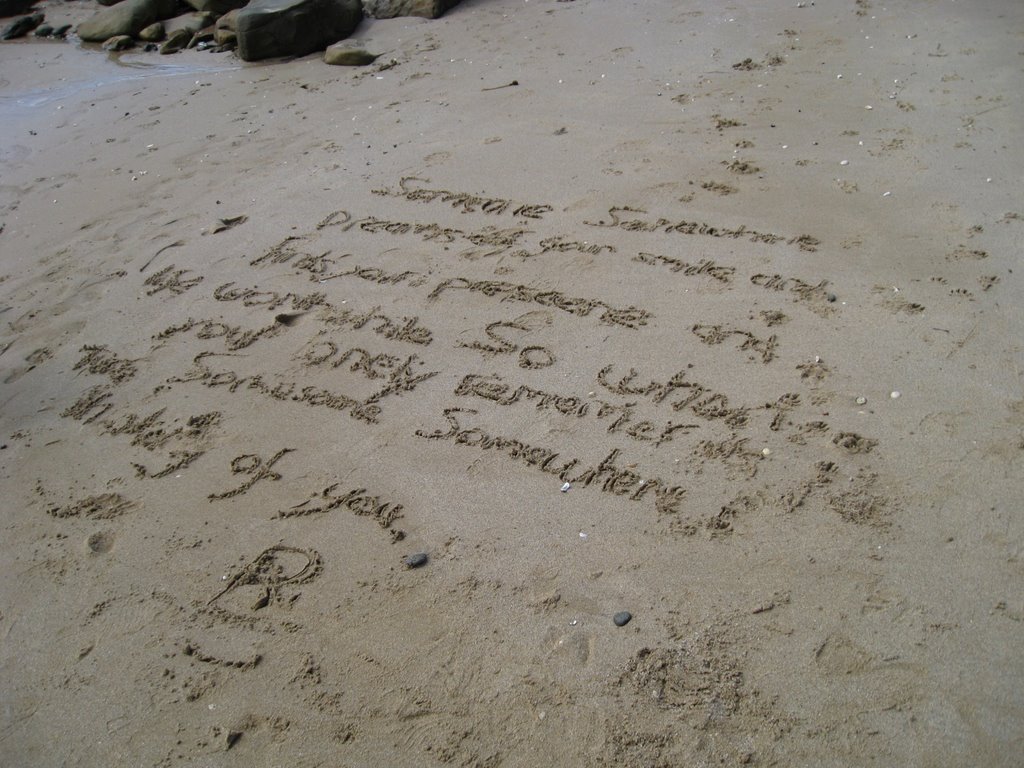 Someone Somewhere
Dreams of your smile and
Finds your presence
life worthwhile So when
your lonely remember
Someone Somewhere
thinking of you